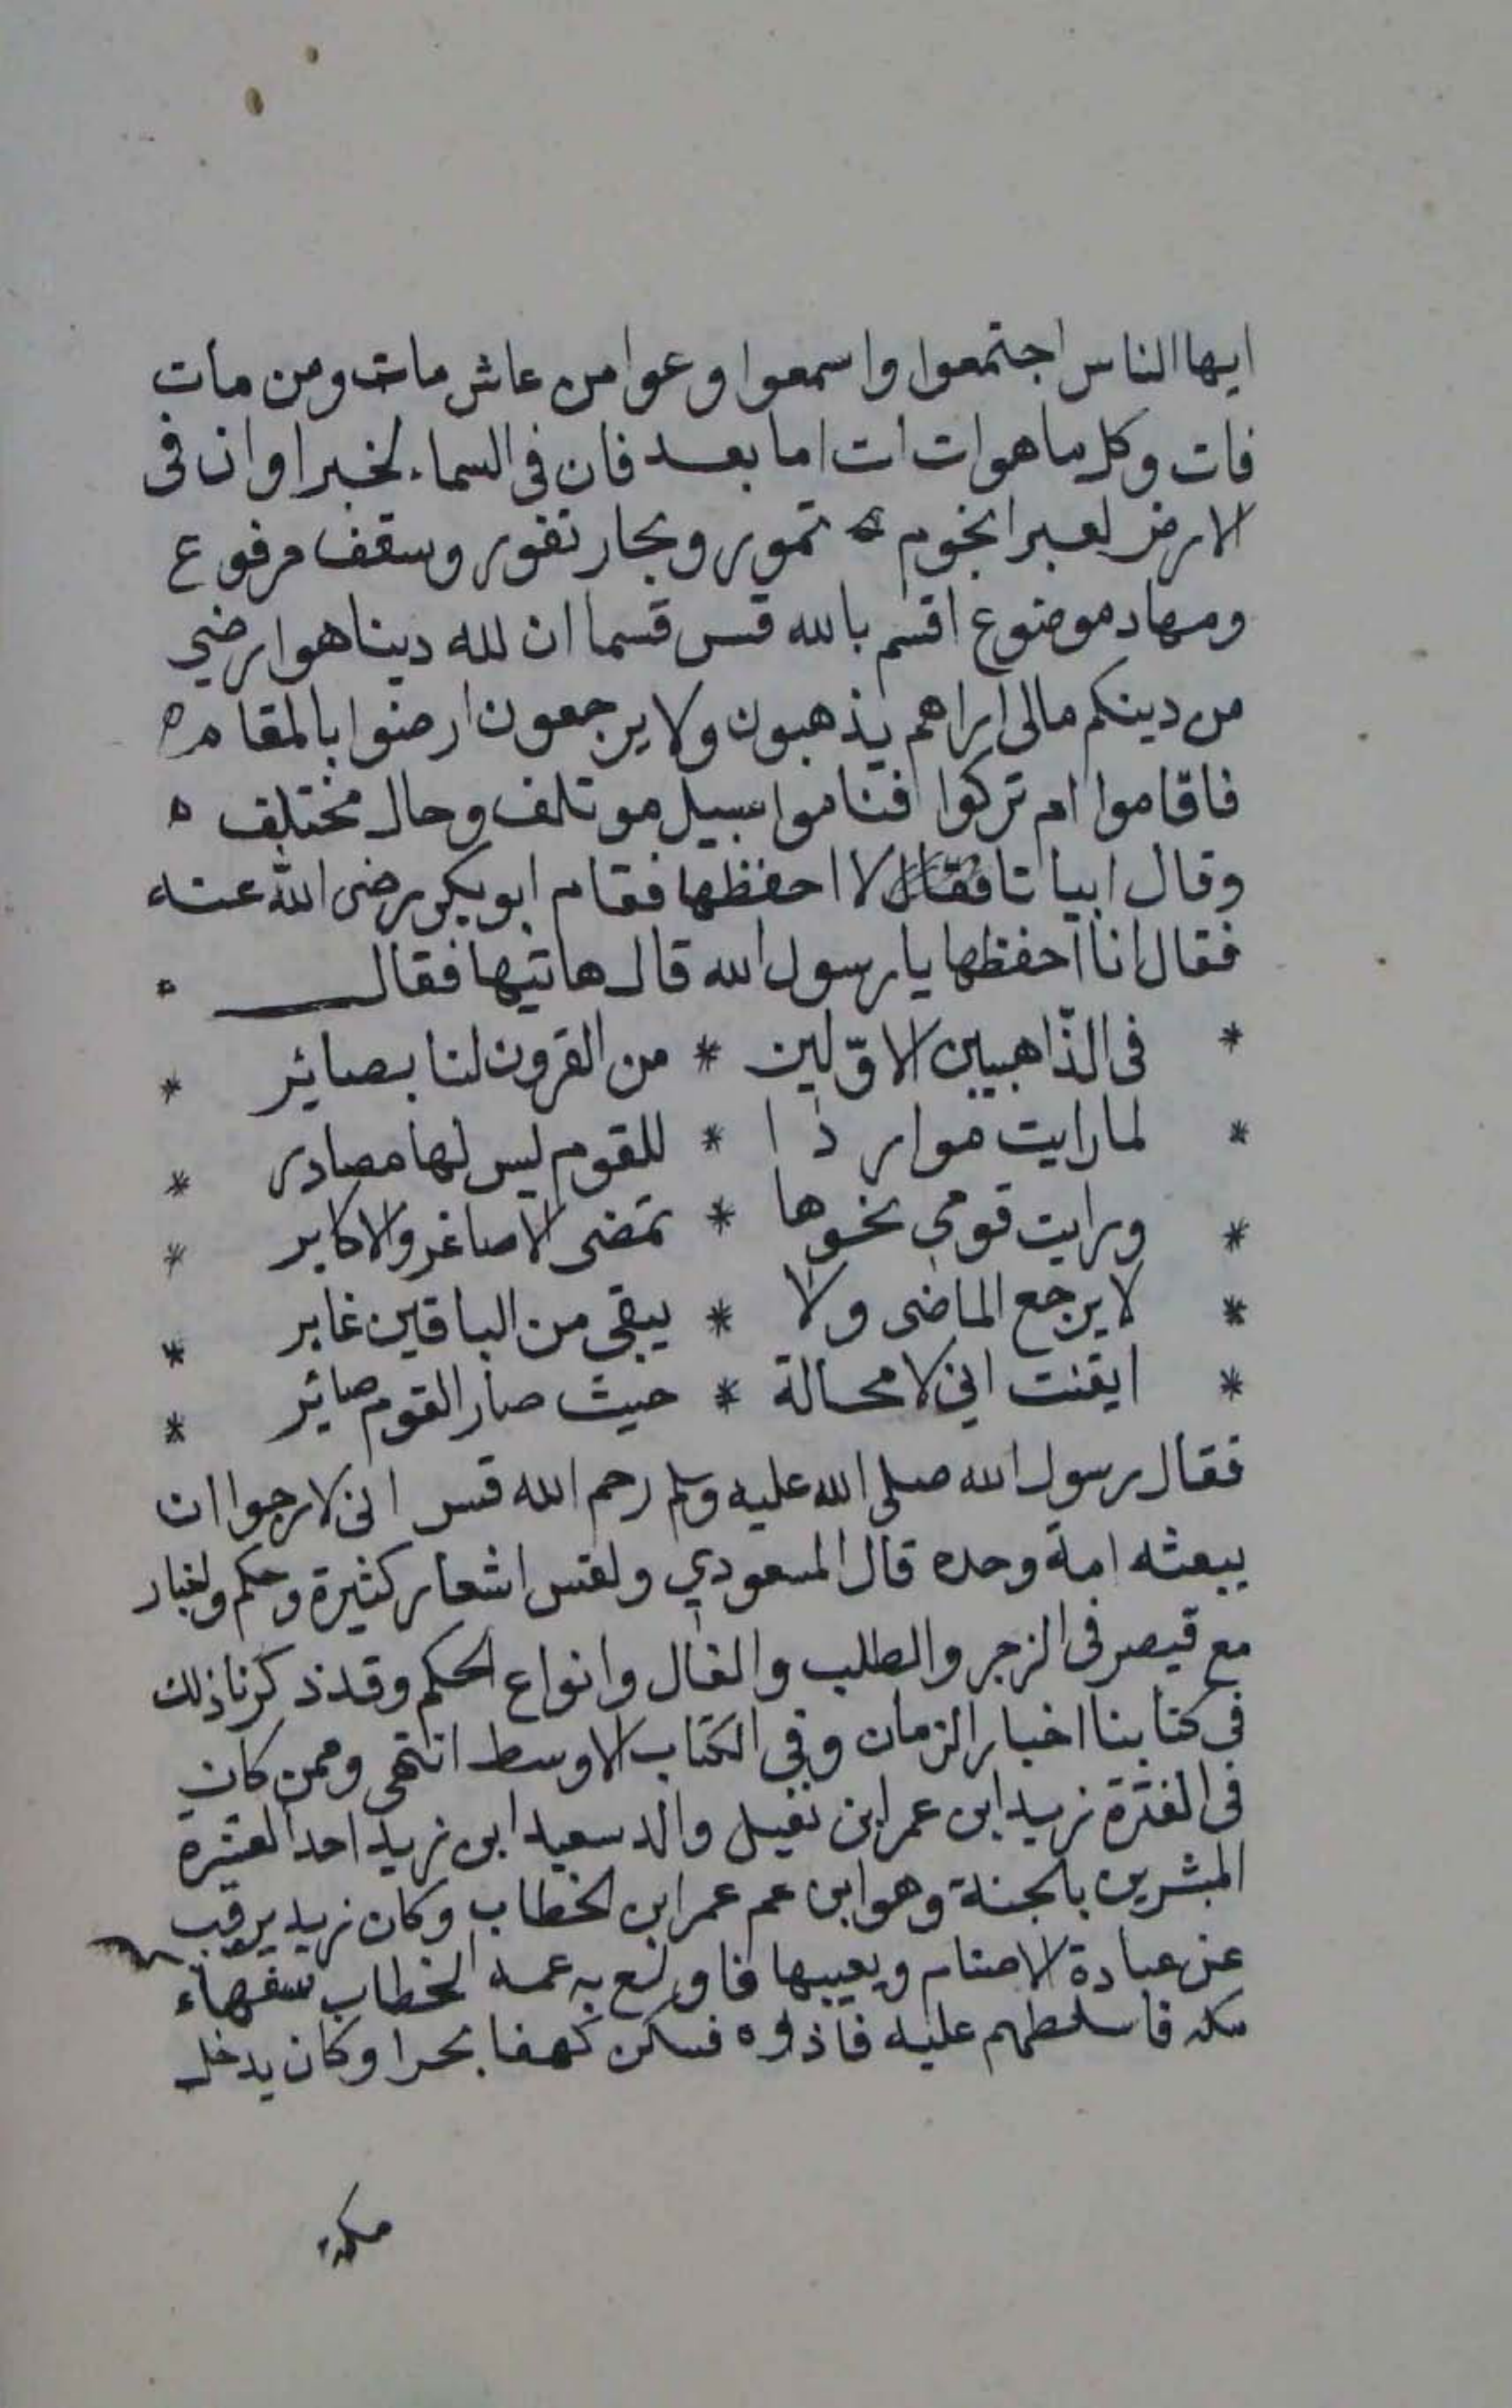 ايها الناس اجتمعوا واسمعوا وعوا من عاش مات ومن مات
فات وكل ما هو ات ات اما بعد فان في السماء لخبرا وان في
الارض لعبرا نجوم تمور وبحار تفور وسقف مرفوع
ومهاد موضوع اقسم بالله قس قسما ان لله دينا هو ارضي
من دينكم مالي اراهم يذهبون ولا يرجعون ارضوا بالمقام ه
فاقاموا ام تركوا فناموا سبيل موتلف وحال مختلف ه
وقال ابياتا لا احفظها فقام ابو بكر رضى الله عنه
فقال انا احفظها يا رسول الله قال هاتيها فقال ه
* في الذّاهبين الاوّلين * من القرون لنا بصائر *
* لما رايت موارذا * للقوم ليس لها مصادر *
* ورايت قومي نخوها * تمضى الاصاغر والاكابر *
* لا يرجع الماضى ولا * يبقى من الباقين غابر *
* ايقنت اني لا محالة * حيث صار القوم صائر *
فقال رسول الله صلى الله عليه وسلم رحم الله قس اني لارجوا ان
يبعثه امة وحده قال المسعودي ولقس اشعار كثيرة وحكم واخبار
مع قيصر في الزجر والطلب والفال وانواع الحكم وقد ذكرنا ذلك
في كتابنا اخبار الزمان وفي الكتاب الاوسط انتهى وممن كان
في الفترة زيد ابن عمر ابن نفيل والد سعيد ابن زيد احد العشرة
المبشرين بالجنة وهو ابن عم عمر ابن الخطاب وكان زيد يرقب
عن عبادة الاصنام ويعيبها فاولع به عمه الخطاب سفهاء
مكه فاسلطهم عليه فاذوه فسكن كهفا بحرا وكان يدخل
مكة